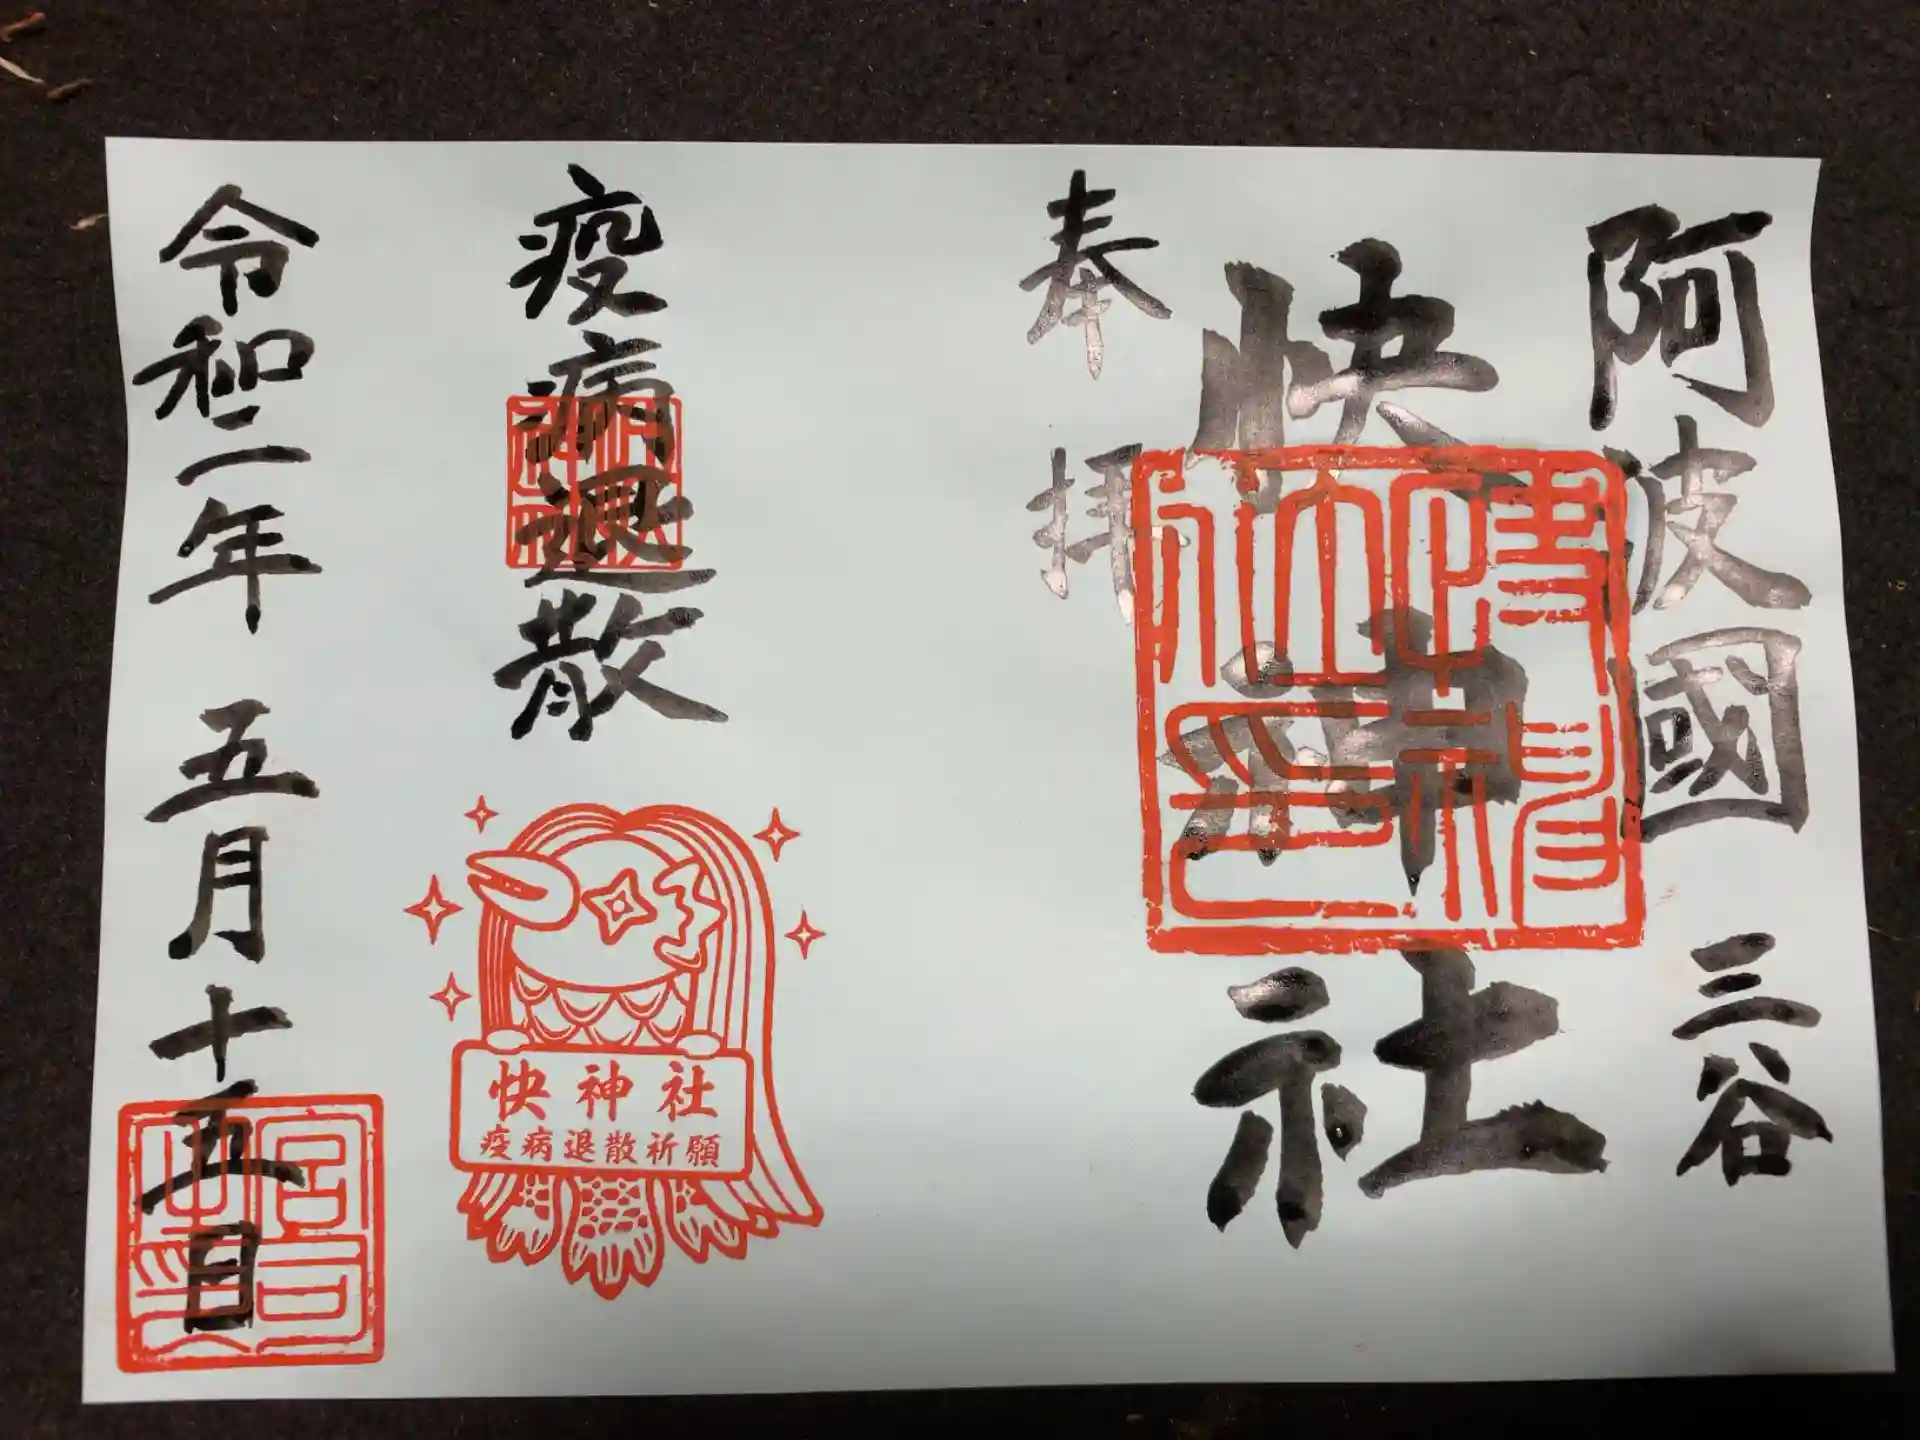 阿波國 三谷
快神社
奉拝
疫病退散
快神社
疫病退散祈願
令和二年 五月十五日